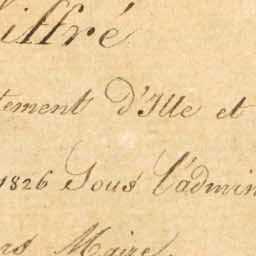 iffré
tement d'Ille et
1826 Sous l'admin
rs Maire.